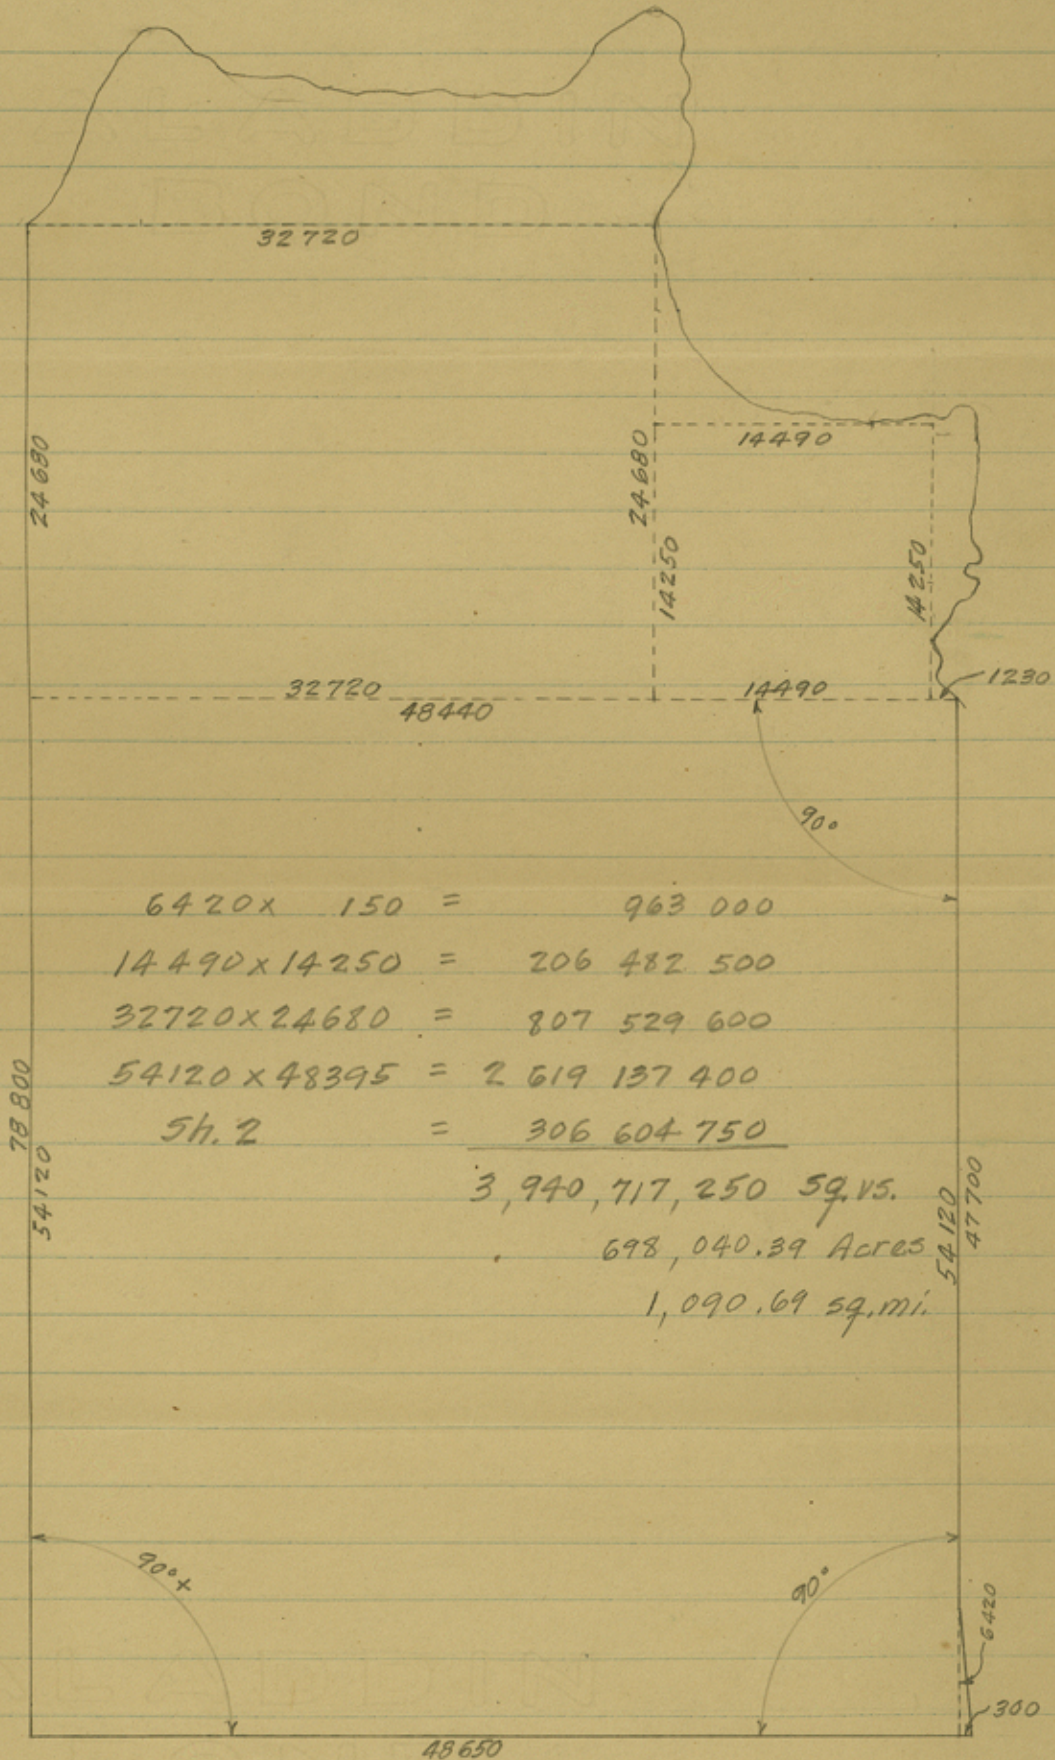 32720
24680
14490
24680
14250
14250
1230
32720
14490
48440
90°
6420 x 150 = 963 000
14490 x 14250 = 206 482 500
32720 x 24680 = 807 529 600
54120 x 48395 = 2 619 137 400
Sh. 2 = 306 604 750
3,940,717,250 Sq. vs.
698,040.39 Acres
1,090.69 sq. mi.
78800
54120
54120
47700
90°+
90°
6420
300
48650